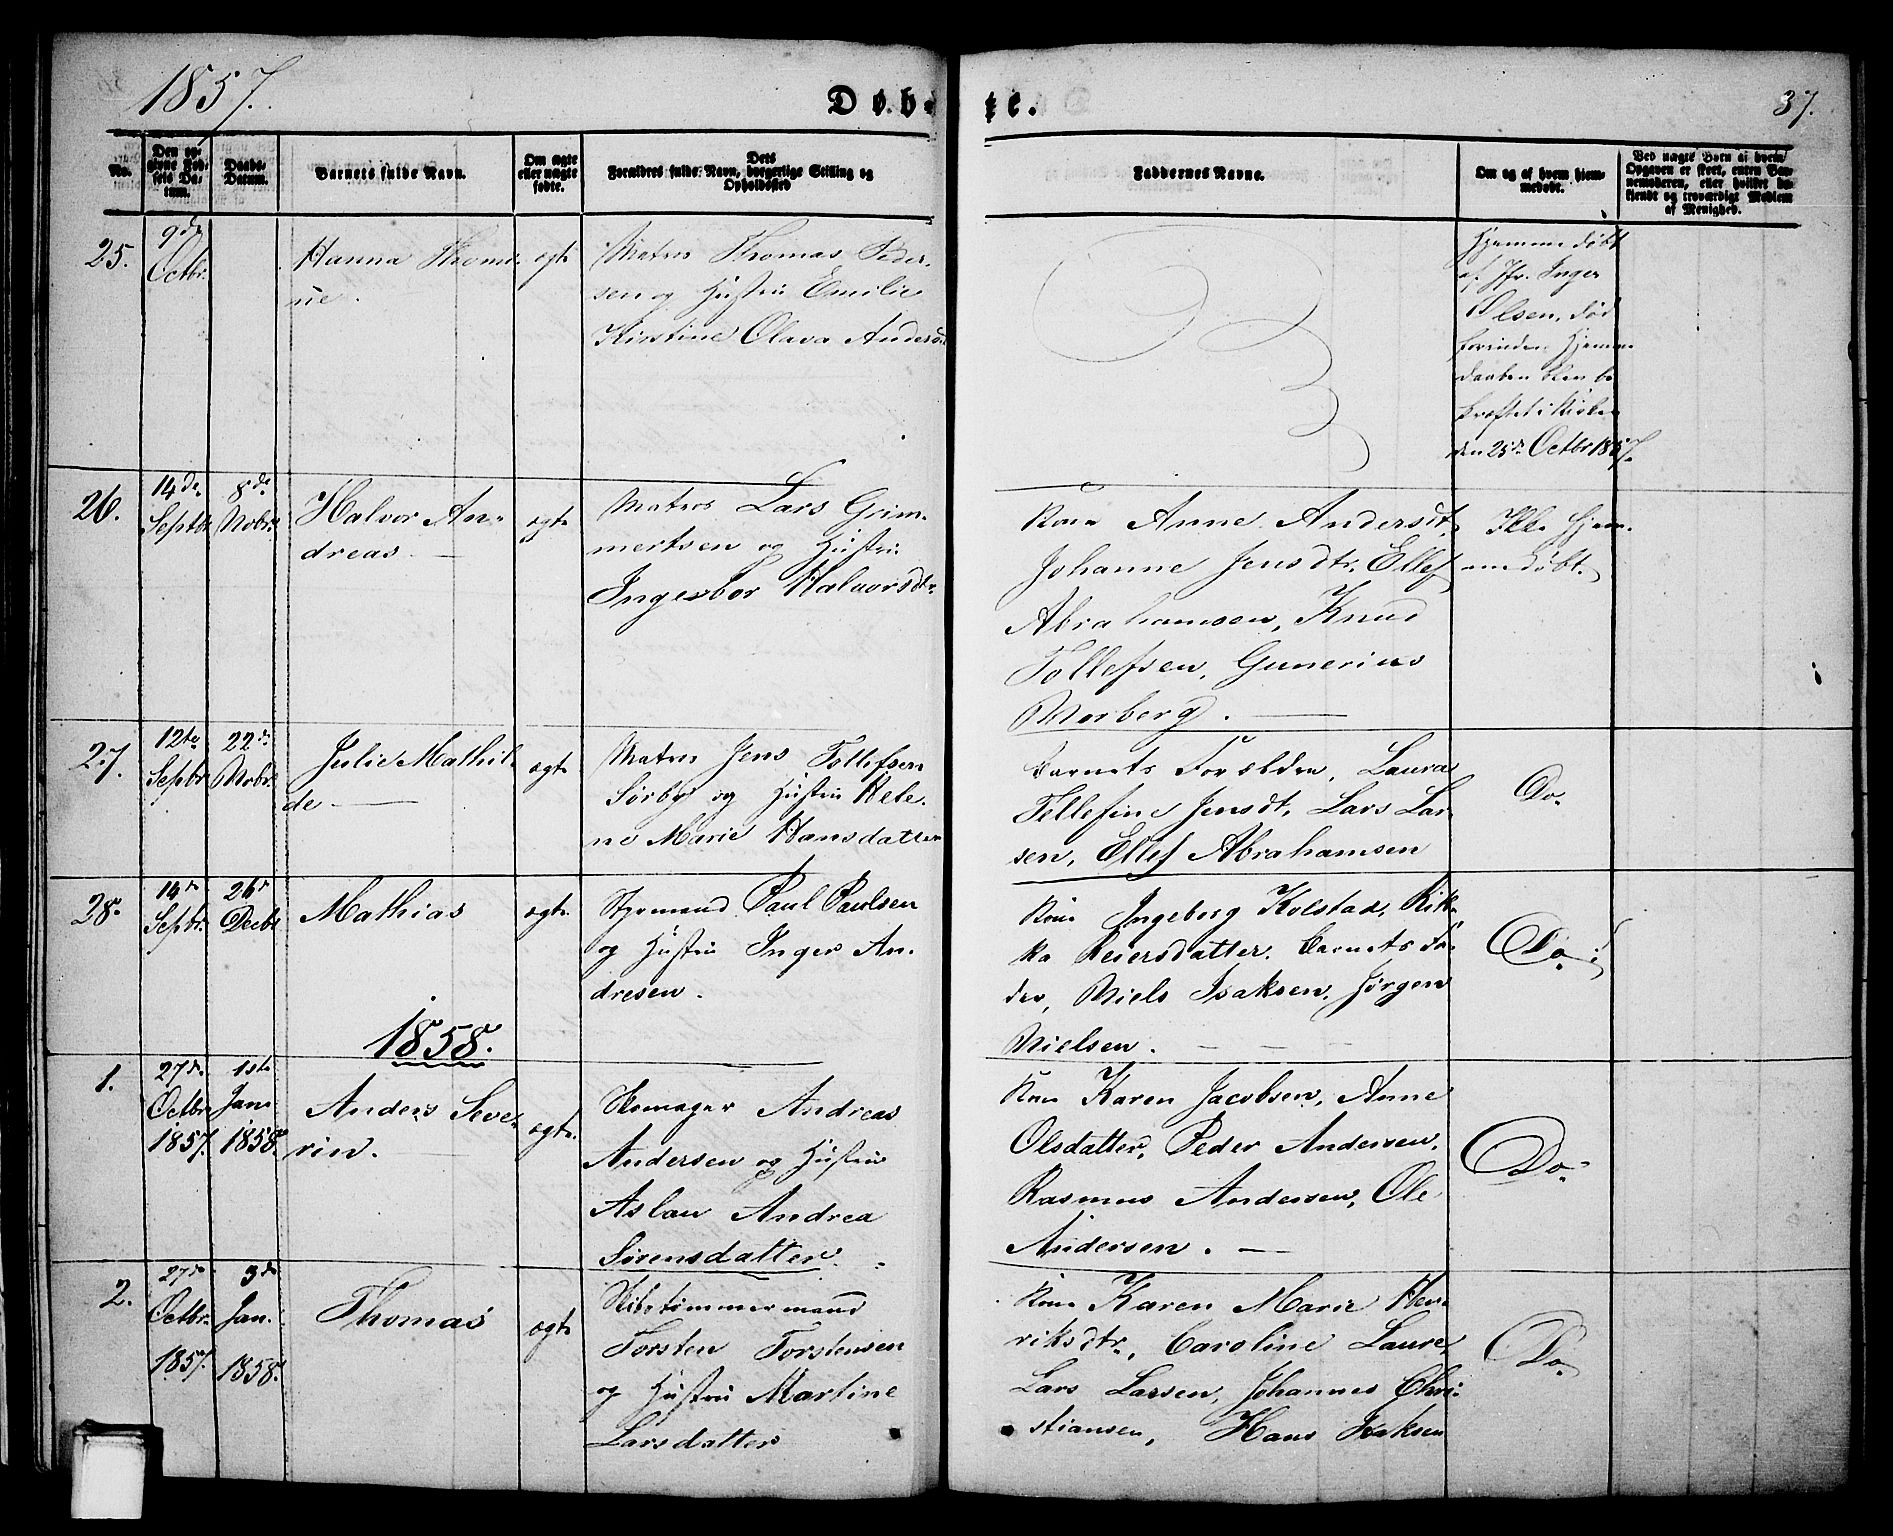 1857.
Døb-
te.
37.
No.
Den op-
givne Fød-
sels Da-
tum.
Daabs-
Datum.
Barnets fulde Navn.
Om ægte
eller uægte
fødte.
Dets
Forældres fulde Navn, borgerlige Stilling og
Opholdssted
Faddernes Navne.
Om og af hvem hjem-
medøbt.
Ved uægte Børn af hvem
Opgaven er skeet, enten Bar-
nemoderen, eller hvilket be-
kjendt og troværdigt Medlem
af Menighed.
25.
9de
Octbr.
Hanna Thomi-
ne.
ægte
Matros Thomas Peder-
sen og Hustru Emilie
Kirstine Olava Andersdt
Hjemme døbt
af Jfr. Inger
Olsen, død
forinden Hjemme
daaben blev be
kræftet i Kirken
den 25de Octbr 1857.
26.
14de
Septbr
8de
Nobr.
Halvor An-
dreas
ægte
Matros Lars Grim-
mertsen og Hustru
Ingesbor Halvorsdtr
Kone Anne Andersdt,
Johanne Jensdtr. Ellef
Abrahamsen, Knud
Tollefsen, Gunerius
Morberg.
Ikke Hjem-
medøbt.
27.
12te
Sepbr
22de
Nobr.
Julie Mathil-
de
ægte
Matros Jens Tollefsen
Sørby og Hustru Hele-
ne Marie Hansdatter
Barnets Forældre, Laura
Tellefine Jensdt, Lars Lar-
sen, Ellef Abrahamsen
Do.
28.
14de
Sepbr.
26de
Decbr
Mathias
ægte.
Styrmand Paul Paulsen
og Hustru Inger An-
dresen.
Kone Ingeborg Kolstad, Rik-
ka Reiersdatter. Barnets Fa-
der, Niels Isaksen, Jørgen
Nielsen.
Do.
1858.
1.
27de
Octbr
1857.
1ste
Jan.
1858.
Anders Seve-
rin.
ægte.
Skomager Andreas
Andersen og Hustru
Aslau Andrea
Sørensdatter.
Kone Karen Jacobsen, Anne
Olsdatter, Peder Andersen,
Rasmus Andersen, Ole
Andersen.
Do.
2.
27de
Octbr.
1857.
3de
Jan.
1858.
Thomas
ægte
Skibstømmermand
Torsten Torstensen
og Hustru Martine
Larsdatter
Kone Karen Marie Hen-
riksdtr., Caroline Laure,
Lars Larsen, Johannes Chri-
stiansen, Hans Isaksen
Do.